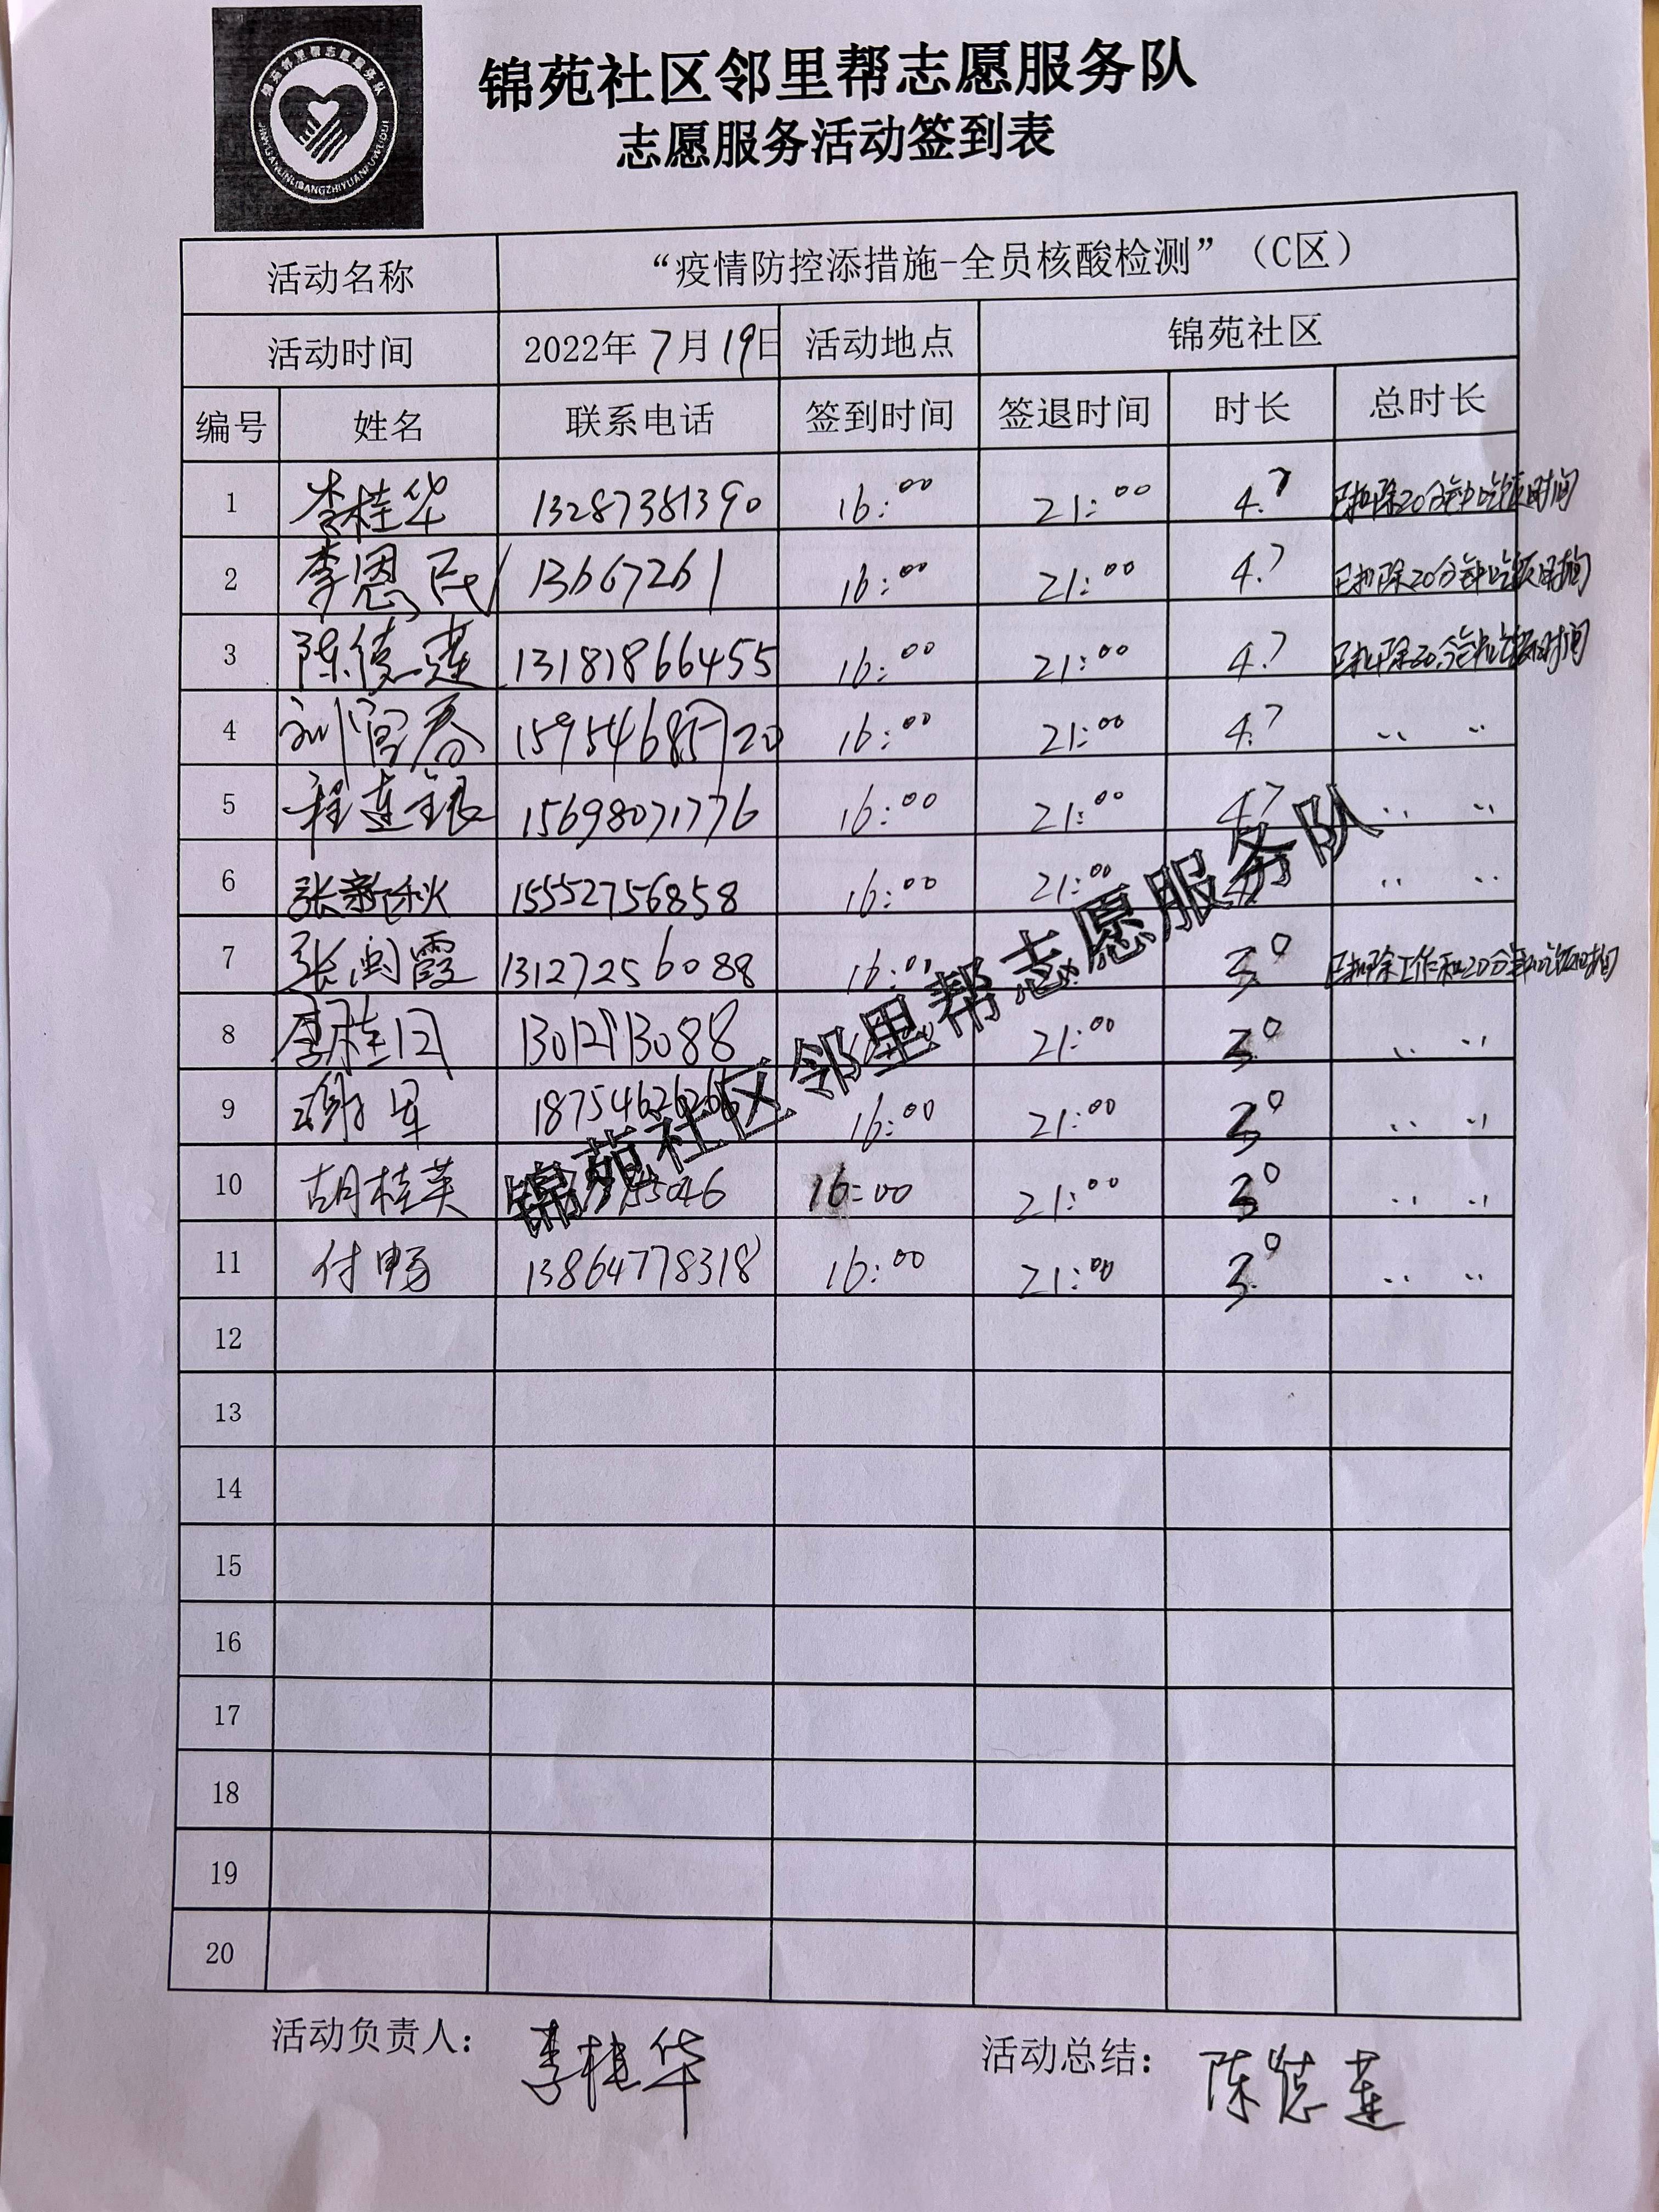 锦苑邻里帮志愿服务队
JINYUANLINLIBANGZHIYUANFUWUDUI
锦苑社区邻里帮志愿服务队
志愿服务活动签到表
活动名称 “疫情防控添措施-全员核酸检测”（C区）
活动时间 2022年7月19日 活动地点 锦苑社区
编号 姓名 联系电话 签到时间 签退时间 时长 总时长
1 李桂华 13287381390 16:00 21:00 4.7 已扣除20分钟吃饭时间
2 李恩民 13667261 16:00 21:00 4.7 已扣除20分钟吃饭时间
3 陈德莲 13181866455 16:00 21:00 4.7 已扣除20分钟吃饭时间
4 刘宫春 16:00 21:00 4.7 〃 〃
5 程连银 15698071776 16:00 21:00 4.7 〃 〃
6 张新秋 15552756858 16:00 21:00 〃 〃
7 张闽霞 13127256088 16:00 3.0 已扣除工作和20分钟吃饭时间
8 李桂 21:00 3.0 〃 〃
9 谢军 16:00 21:00 3.0 〃 〃
10 胡桂英 16:00 21:00 3.0 〃 〃
11 付畅 13864778318 16:00 21:00 3.0 〃 〃
锦苑社区邻里帮志愿服务队
12
13
14
15
16
17
18
19
20
活动负责人： 李桂华 活动总结： 陈德莲